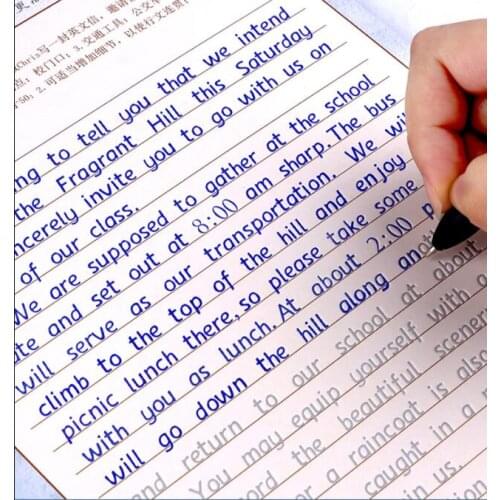 Chris写一封英文信，邀请
点：校门口；3.交通工具：公交车
50；2.可适当增加细节，以使行文连贯
ng to tell you that we intend
the Fragrant Hill this Saturday
ncerely invite you to go with us on
of our class.
We are supposed to gather at the school
te and set out at 8:00 am sharp. The bus
will serve as our transportation. We wi
climb to the top of the hill and enjoy
picnic lunch there, so please take some
with you as lunch. At about 2:00 p
will go down the hill along ano
and return to our school at about
You may equip yourself with a
rd the beautiful scener
or a raincoat is also
caught in a r
n us.